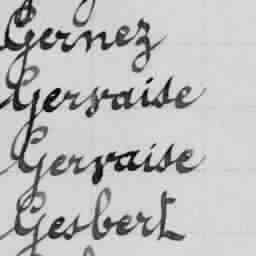 Gernez
Gervaise
Gervaise
Gesbert